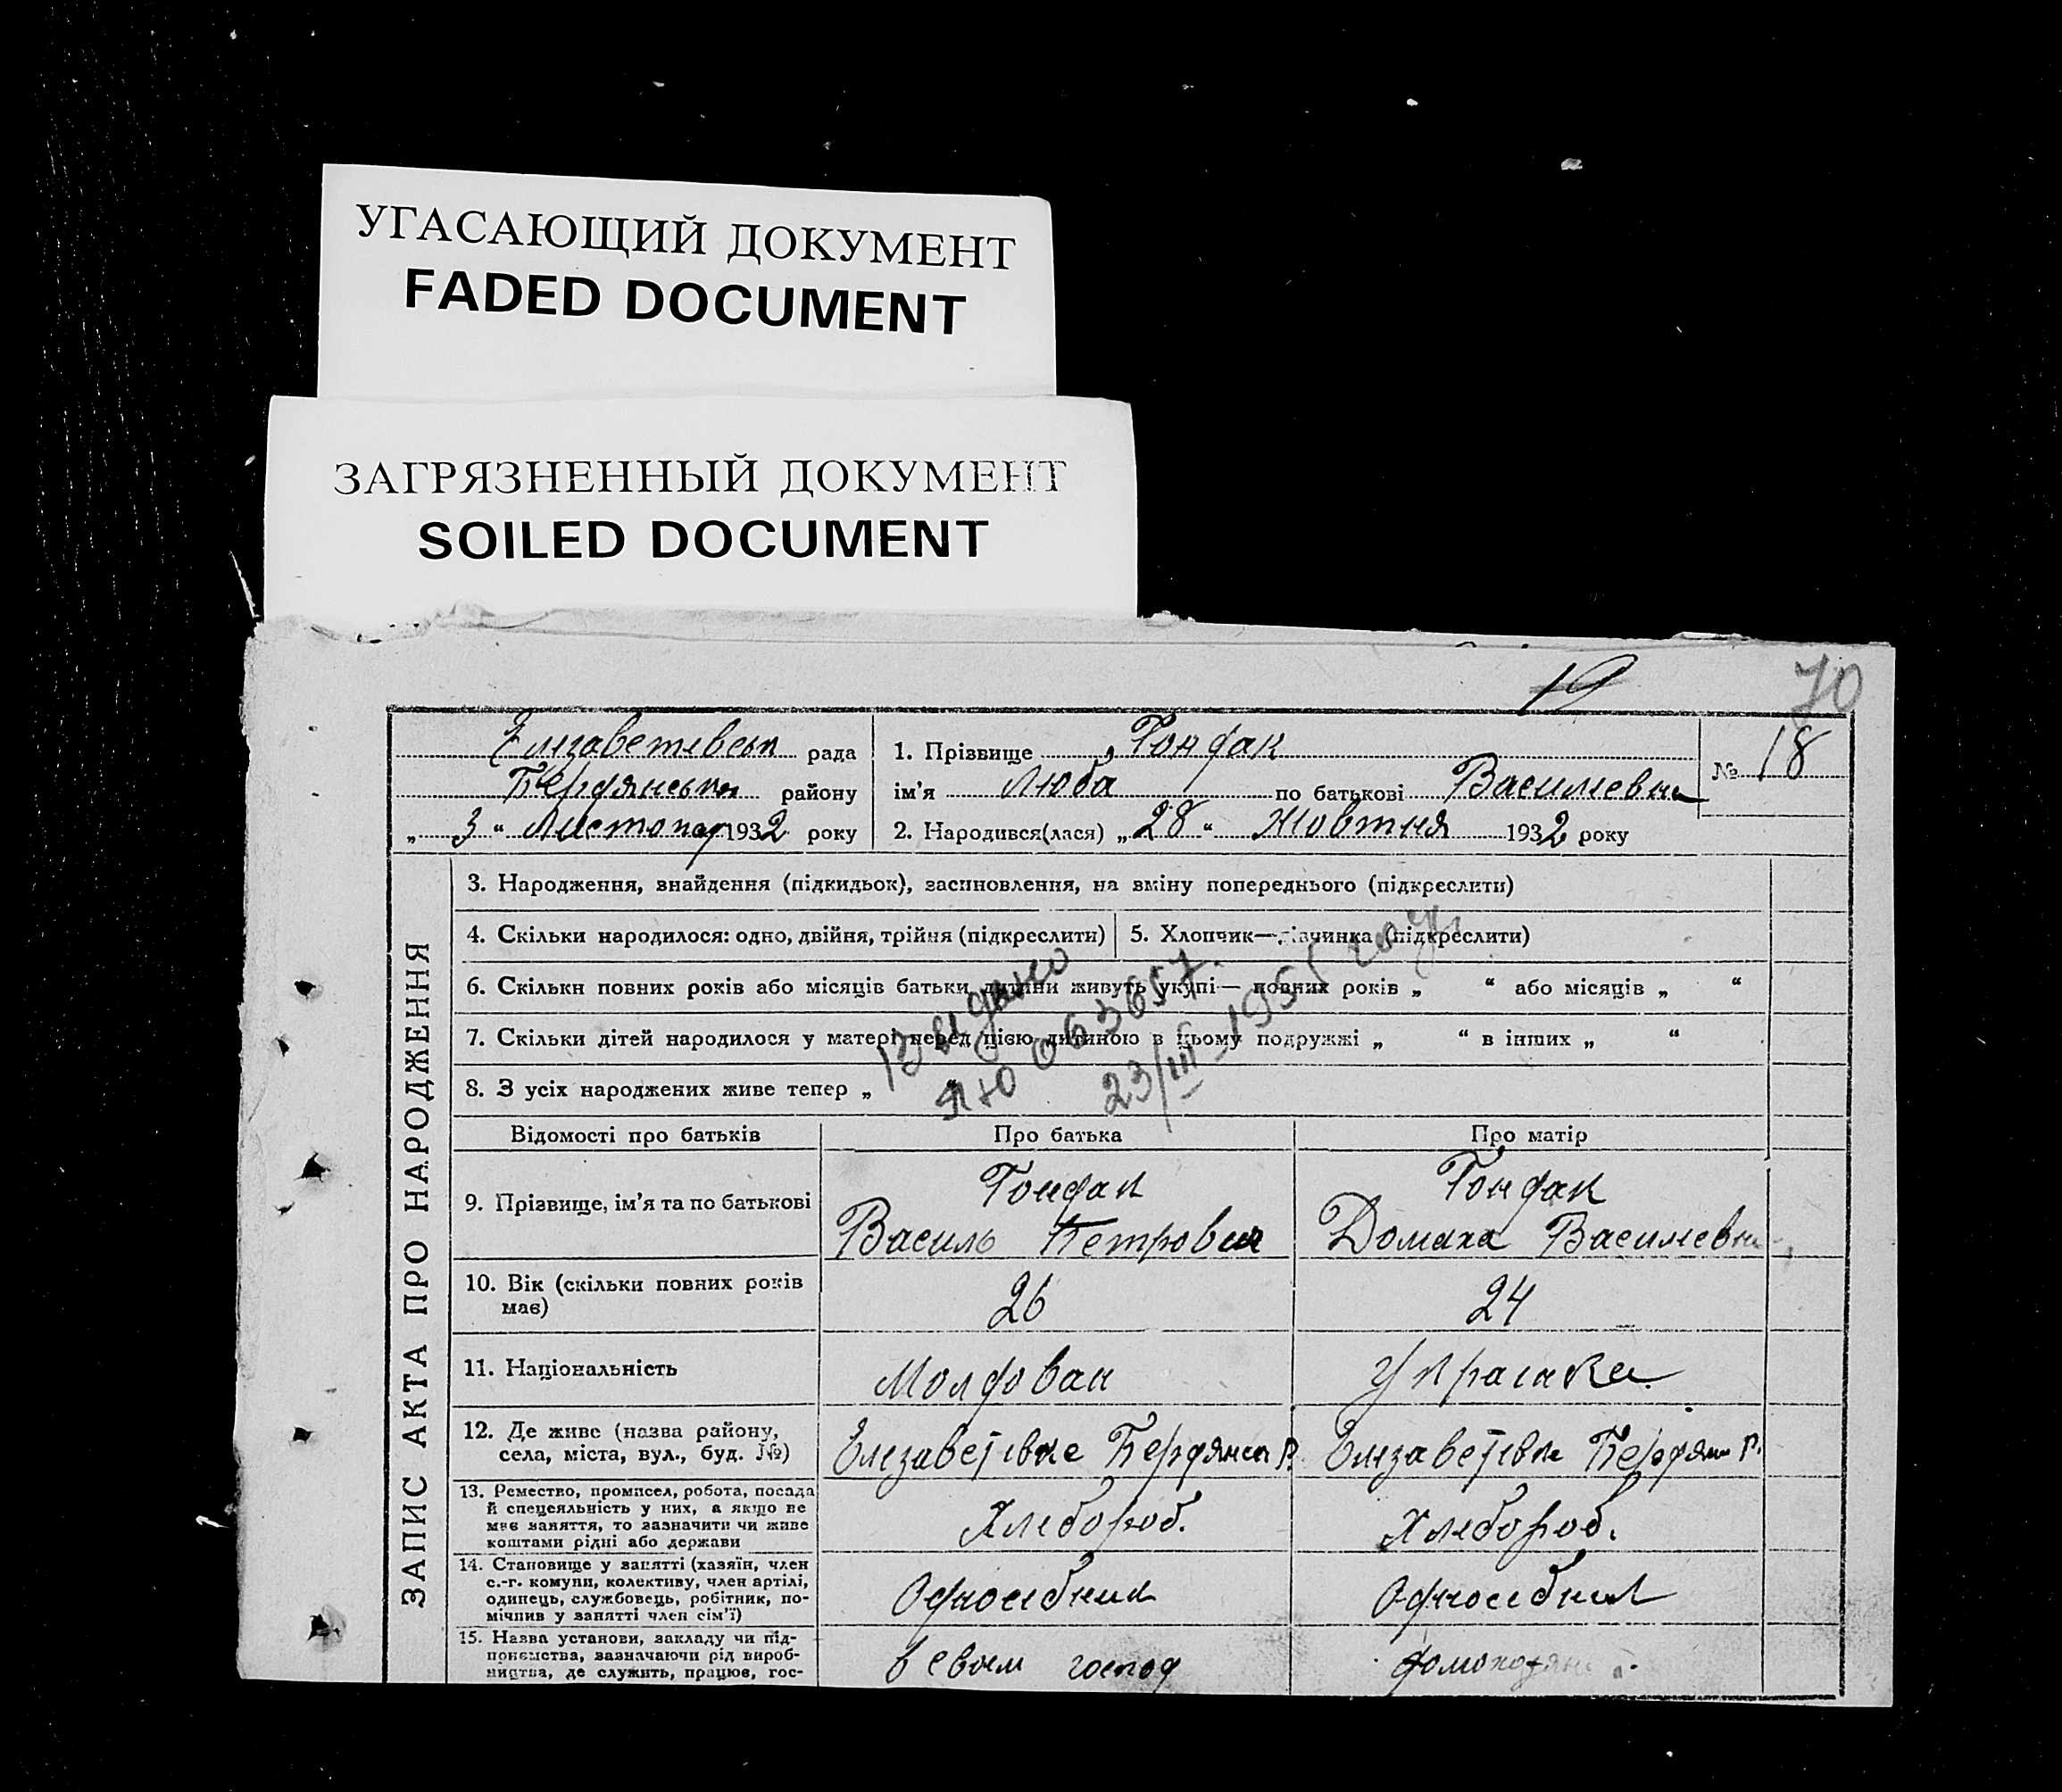 УГАСАЮЩИЙ ДОКУМЕНТ
FADED DOCUMENT
ЗАГРЯЗНЕННЫЙ ДОКУМЕНТ
SOILED DOCUMENT
19
70
Елизаветевськ рада
Бердянськ району
„ 3 “ Листопад 1932 року
1. Прізвище Гондак
ім'я Люба по батькові Василевна
2. Народився(лася) „ 28 “ Жовтня 1932 року
№ 18
ЗАПИС АКТА ПРО НАРОДЖЕННЯ
3. Народження, знайдення (підкидьок), засиновлення, на вміну попереднього (підкреслити)
4. Скільки народилося: одно, двійня, трійня (підкреслити)
5. Хлопчик—дівчинка (підкреслити)
6. Скільки повних років або місяців батьки дитини живуть укупі— повних років „ “ або місяців „ “
7. Скільки дітей народилося у матері перед цією дитиною в цьому подружжі „ “ в інших „ “
8. З усіх народжених живе тепер „ “
Видано
ЯЮ 063657.
23/III-1955 году
Відомості про батьків
Про батька
Про матір
9. Прізвище, ім'я та по батькові
Гондак
Василь Петрович
Гондак
Домаха Василевна
10. Вік (скільки повних років
має)
26
24
11. Національність
Молдован
Украинка
12. Де живе (назва району,
села, міста, вул., буд. №)
Елизаветівке Бердянск Р.
Елизаветівке Бердян Р.
13. Ремество, промисел, робота, посада
й спецеяльність у них, а якщо не
має заняття, то зазначити чи живе
коштами рідні або держави
Хлебороб.
Хлебороб.
14. Становище у занятті (хазяїн, член
с.-г. комуни, колективу, член артілі,
одинець, службовець, робітник, по-
мічник у занятті член сім'ї)
Одноосібник
Одноосібник
15. Назва установи, закладу чи під-
приємства, зазначаючи рід вироб-
ництва, де служить, працює, гос-
в своем господ